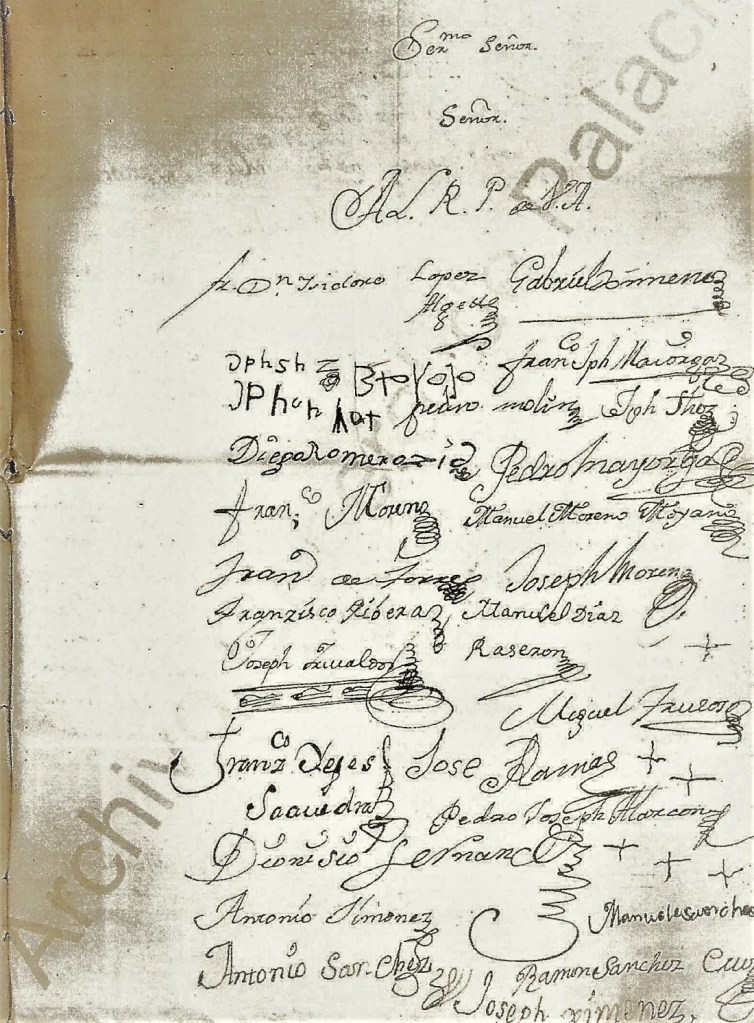 Serᵐᵒ Señor.
Señor.
A L. R. P. de V. A.
fr. Dⁿ Isidoro Lopez Gabriel Ximeno
Algete
Franᶜᵒ Jph Maiorga
pedro molin Jph
Diego Romero Pedro Mayorga
franᶜᵒ Moreno Manuel Moreno Moyano
Franᵒ de Torres Joseph Moreno
Franzisco Ribera Manuel Diaz
Joseph Raseron
Miguel
Franzᶜᵒ Yepes Jose Ramas
Saavedra Pedro Joseph Alarcon
Dionisio Fernandez
Antonio Ximenez Manuel
Antonio Sanchez Ramon Sanchez
Joseph ximenez,
Archivo Palacio